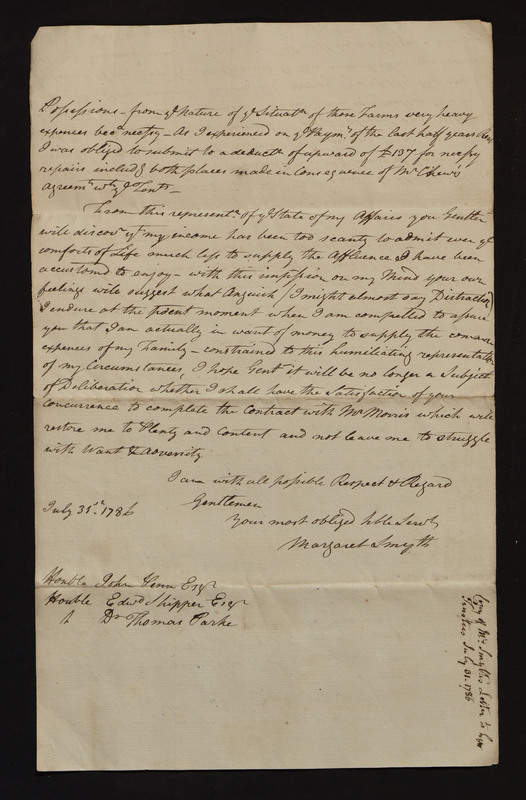 Possessions - from ye Nature of ye Situatn of those Farms very heavy
expences become necessy - As I experienced on ye Paymt of the last half years Rent
I was obliged to submit to a deductn of upward of £137 for necessy
repairs includg both places made in Consequence of Mr Chew's
Agreemt wth ye Tents -
From this representn of ye State of my Affairs you Gentlen
will discovr yt my income has been too scanty to admit even ye
comforts of Life much less to supply the Affluence I have been
accustomd to enjoy - with this impression on my Mind your own
feelings will suggest what Anguish (I might almost say Distraction)
I endure at the present moment when I am compelled to assure
you that I am actually in want of money to supply the common
expences of my Family - constrained to this humiliating representation
of my Circumstances, I hope Gent it will be no longer a Subject
of Deliberation whether I shall have the Satisfaction of your
Concurrence to complete the Contract with Mr Morris which will
restore me to Plenty and Content and not leave me to struggle
with Want & Adversity
I am with all possible Respect & Regard
Gentlemen
July 31st 1786
Your most obliged hble Servt
Margaret Smyth
Honble John Penn Esqr
Honble Edwd Shippen Esqr
& Dr Thomas Parke
Copy of Mrs Smyth's Letter to her
Trustees July 31. 1786